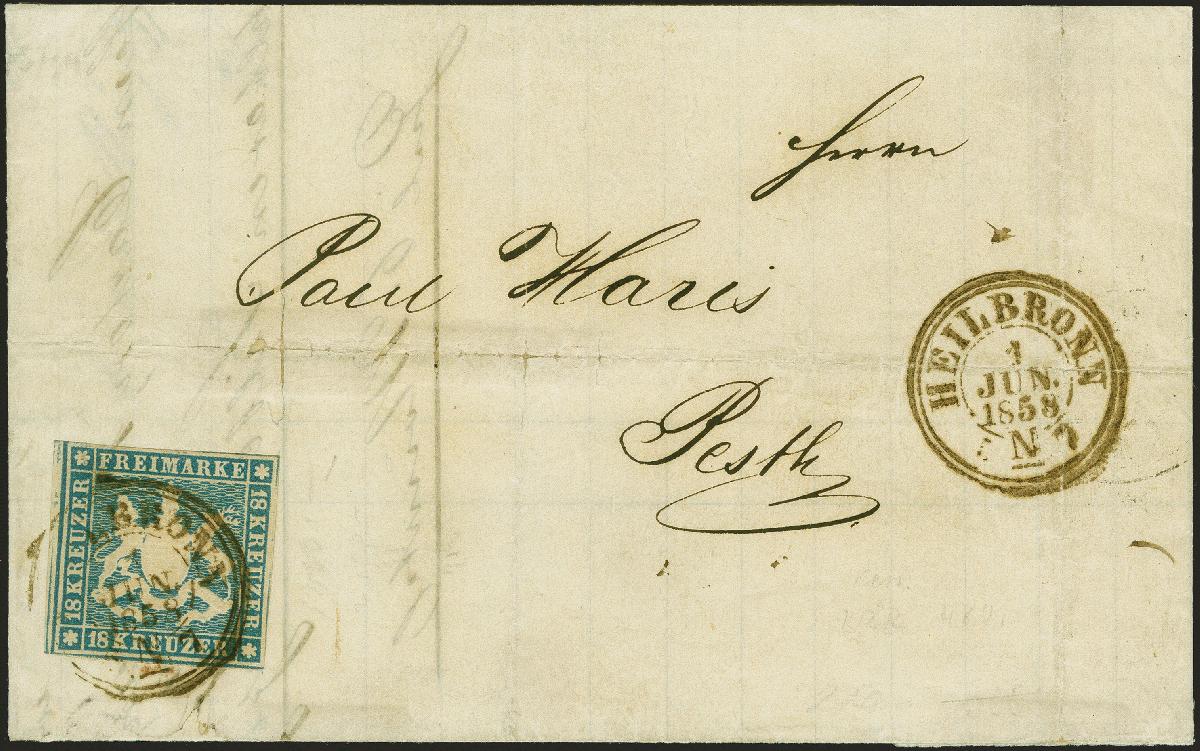 Herrn
Paul Maris
Pesth
HEILBRONN
1
JUN.
1858
N 7
FREIMARKE
18 KREUZER
18 KREUZER
18 KREUZER
BRONN
1
JUN.
1858
N 7